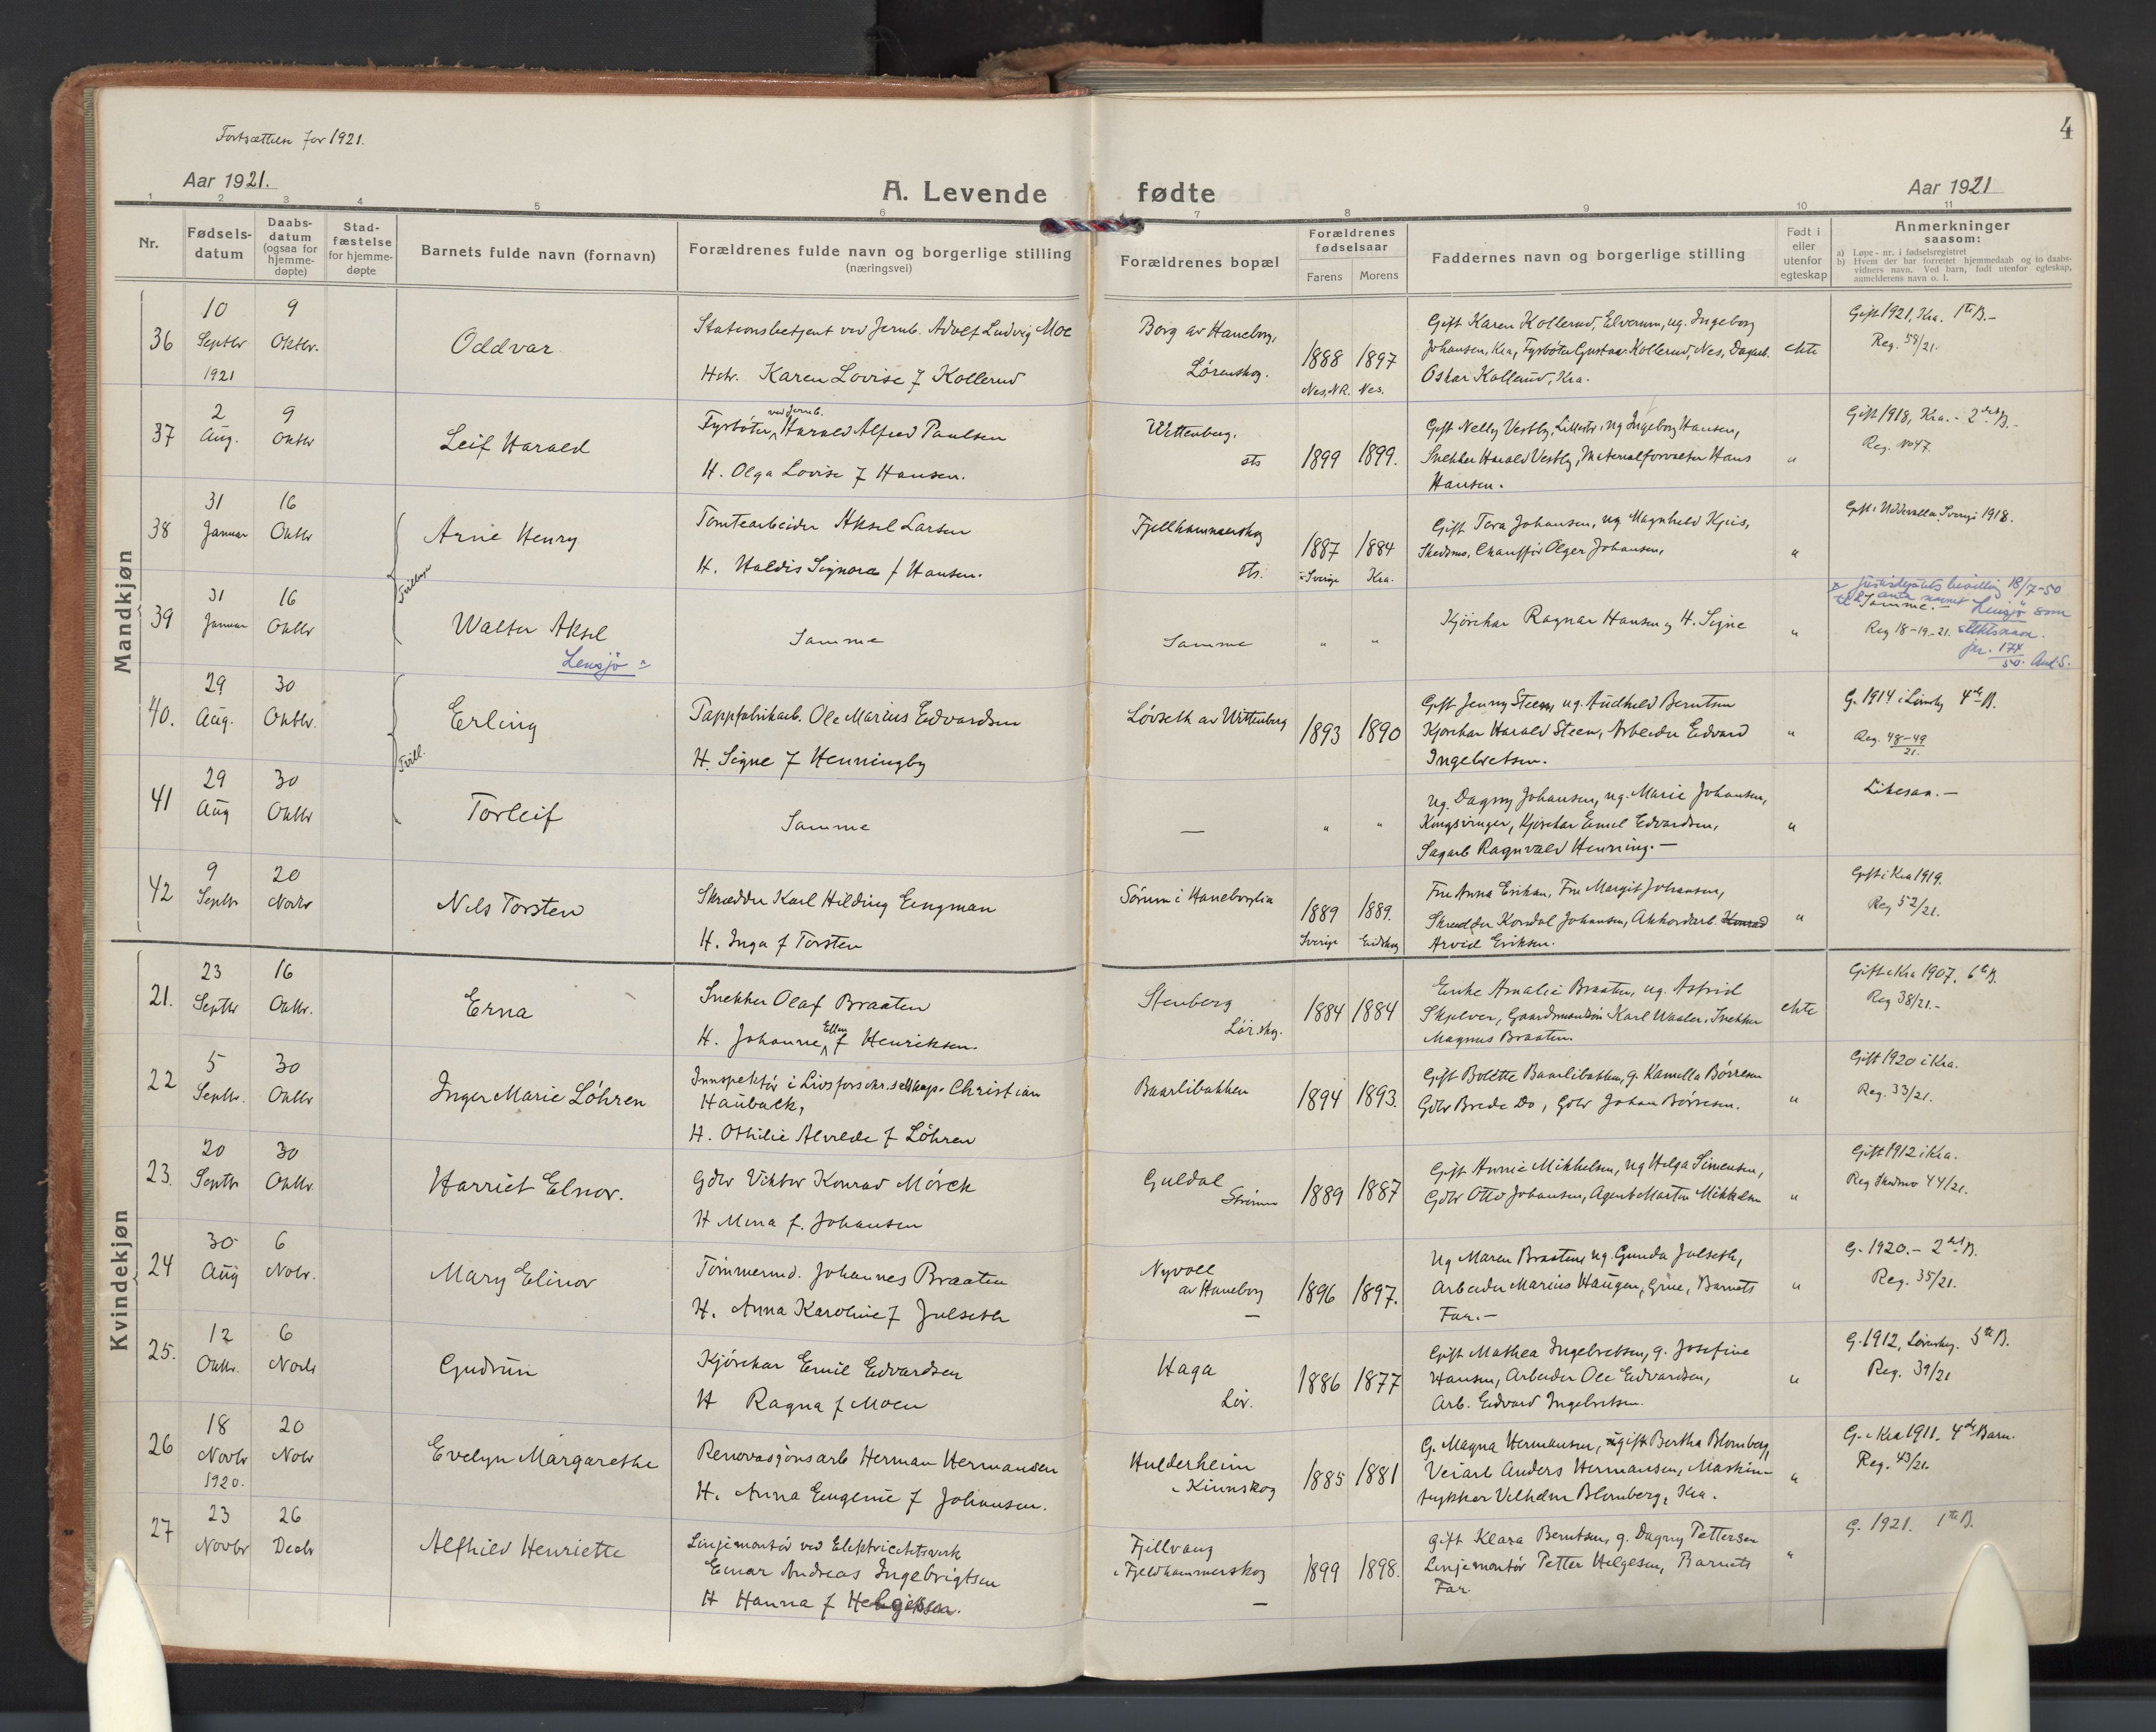 Fortsættelse for 1921.
4
Aar 1921.
A. Levende fødte
Aar 1921
1 2 3 4 5 6 7 8 9 10 11
Nr.
Fødsels-
datum
Daabs-
datum
(ogsaa for
hjemme-
døpte)
Stad-
fæstelse
for hjemme-
døpte
Barnets fulde navn (fornavn)
Forældrenes fulde navn og borgerlige stilling
(næringsvei)
Forældrenes bopæl
Forældrenes
fødselsaar
Farens Morens
Faddernes navn og borgerlige stilling
Født i
eller
utenfor
egteskap
Anmerkninger
saasom:
a) Løpe-nr. i fødselsregistret
b) Hvem der har forrettet hjemmedaab og to daabs-
vidners navn. Ved barn, født utenfor egteskap,
anmelderens navn o. l.
Mandkjøn
36
10
Septbr
1921
9
Oktbr.
Oddvar
Stationsbetjent ved Jernb. Adolf Ludvig Moe
Hstr. Karen Lovise f Kollerud
Borg av Haneborg,
Lørenskog.
1888 1897
Nes, N.R. Nes.
Gift Karen Kollerud, Elverum, ug. Ingeborg
Johansen, Kra, Fyrbøter Gustav Kollerud, Nes, Dagarb.
Oskar Kollerud, Kra.
ekte
Gift 1921, Kra. 1ste B.-
Reg. 58/21.
37
2
Aug.
9
Oktbr
Leif Harald
Fyrbøter ved Jernb. Harald Alfred Paulsen
H. Olga Lovise f Hansen.
Wittenberg,
sts
1899 1899.
Gift Nelly Vestby, Lillestr, ug Ingeborg Hansen,
Snekker Harald Vestby, Materialforvalter Hans
Hansen.
"
Gift 1918, Kra. - 2det B.-
Reg. No 47.
38
31
Januar
16
Oktbr
Tvillinger
Arne Henry
Tomtearbeider Aksel Larsen
H. Haldis Signora f Hansen.
Fjellhammerskog
sts.
1887 1884
Sverige Kra.
Gift Tora Johansen, ug Magnhild Kjus,
Skedsmo, Chauffør Olger Johansen,
"
Gift i Uddevalla, Sverige 1918.
39
31
Januar
16
Oktbr
Walter Aksel
Lensjö
Samme
Samme
" "
Kjørekar Ragnar Hansen og H. Signe
"
Justisdep.ts bevilling 18/7-50
til å anta navnet Lensjö som
slektsnavn.
Samme.-
Reg 18-19-21.
jnr. 174
50. Aud. S.
40.
29
Aug.
30
Oktbr.
Tvill.
Erling
Pappfabrikarb. Ole Marius Edvardsen
H. Signe f Henningby
Løvseth av Wittenberg
1893 1890
Gift Jenny Steen, ug. Audhild Berntsen
Kjørekar Harald Steen, Arbeider Edvard
Ingebretsen.
"
G. 1914 i Lørensk 4de B.
Reg. 48-49
21.
41
29
Aug
30
Oktbr
Torleif
Samme
—
" "
Ug. Dagny Johansen, ug. Marie Johansen,
Kongsvinger, Kjørekar Emil Edvardsen,
Sagarb Ragnvald Henning.-
"
Likesaa.-
42
9
Septbr
20
Novbr
Nils Torsten
Skrædder Karl Hilding Engman
H. Inga f Torsten
Sørum i Haneborglia
1889 1889.
Sverige Eidskog
Fru Anna Eriksen, Fru Margit Johansen,
Skrædder Kordal Johansen, Akkordarb. Konrad
Arvid Eriksen.
"
Gift i Kra 1919.
Reg 52/21.
Kvindekjøn
21.
23
Septbr
16
Oktbr.
Erna
Snekker Olaf Braaten
H. Johanne Ellen f Henriksen.
Stenberg
Lørskog.
1884 1884
Enke Amalie Braaten, ug. Astrid
Skjelver, Gaardmandsøn Karl Waaler, Snekker
Magnus Braaten.
ekte
Gift i Kra 1907. 6te B.
Reg 38/21.-
22
5
Septbr.
30
Oktbr
Inger Marie Löhren
Innspektør i Livsforsikr.selskap. Christian
Hauback,
H. Othilie Alvilde f Löhren
Baarlibakken
1894 1893.
Gift Bolette Baarlibakken, g. Kamilla Børresen
Gdbr Brede Do, Gdbr Johan Børresen.
"
Gift 1920 i Kra.
Reg. 33/21.
23.
20
Septbr
30
Oktbr
Harriet Elnor.
Gdbr Viktor Konrad Mörck
H Mina f. Johansen
Guldal
Strømm
1889 1887
Gift Annie Mikkelsen, ug Helga Simensen,
Gdbr Otto Johansen, Agent Martin Mikkelsen
"
Gift 1912 i Kra.
Reg Skedsmo 44/21.
24
30
Aug
6
Nobr.
Mary Elinor
Tømmermd. Johannes Braaten
H. Anna Karoline f Julseth
Nyvoll
av Haneborg
—
1896 1897.
Ug Maren Braaten, ug. Gunda Julseth,
Arbeider Marius Haugen, Grue, Barnets
Far.-
"
G. 1920.- 2det B.
Reg. 35/21.
25.
12
Oktbr.
6
Novbr
Gudrun
Kjørekar Emil Edvardsen
H Ragna f Moen
Haga
Lør.
1886 1877
Gift Mathea Ingebretsen, g. Josefine
Hansen, Arbeider Ole Edvardsen,
Arb. Edvard Ingebretsen.
"
G. 1912, Lørenskog. 5te B.
Reg. 39/21
26
18
Novbr
1920.
20
Nobr
Evelyn Margarethe
Renovasjonsarb Herman Hermansen
H. Anna Eugenie f Johansen.
Hulderheim
i Kinnskog
1885 1881
G. Magna Hermansen, ugift Bertha Blomberg,
Veiarb Anders Hermansen, Maskin-
trykker Vilhelm Blomberg, Kra.
"
G. i Kra 1911. 4de Barn.
Reg. 43/21.
27
23
Novbr
26
Decbr
Alfhild Henriette
Linjemontør ved Elektricitetsverk
Einar Andreas Ingebrigtsen
H Hanna f Helgesen.
Fjellvang
i Fjeldhammerskog
—
1899 1898.
Gift Klara Berntsen, g. Dagny Pettersen
Linjemontør Petter Helgesen, Barnets
Far.
"
G. 1921. 1ste B.